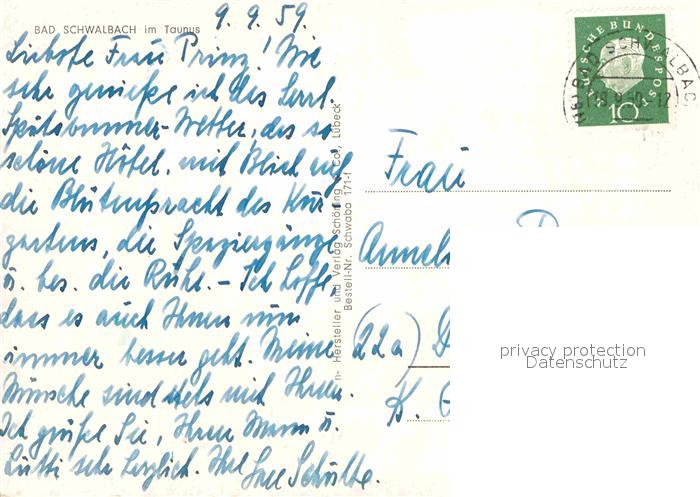 BAD SCHWALBACH im Taunus
9. 9. 59.
Liebste Frau Prinz! Wie
sehr genieße ich das herrl.
Spätsommer-Wetter, das so
schöne Hôtel, mit Blick auf
die Blütenpracht des Kur-
gartens, die Spaziergänge
u. bes. die Ruhe. – Ich hoffe,
dass es auch Ihnen nun
immer besser geht. Meine
Wünsche sind stets mit Ihnen.
Ich grüße Sie, Ihren Mann u.
Lutti sehr herzlich. Ihre Schulte.
Hersteller und Verlag Schöning & Co., Lübeck
Bestell-Nr. Schwaba 171-f
DEUTSCHE BUNDESPOST
10
BAD SCHWALBACH
Frau
(22a)
K.
privacy protection
Datenschutz